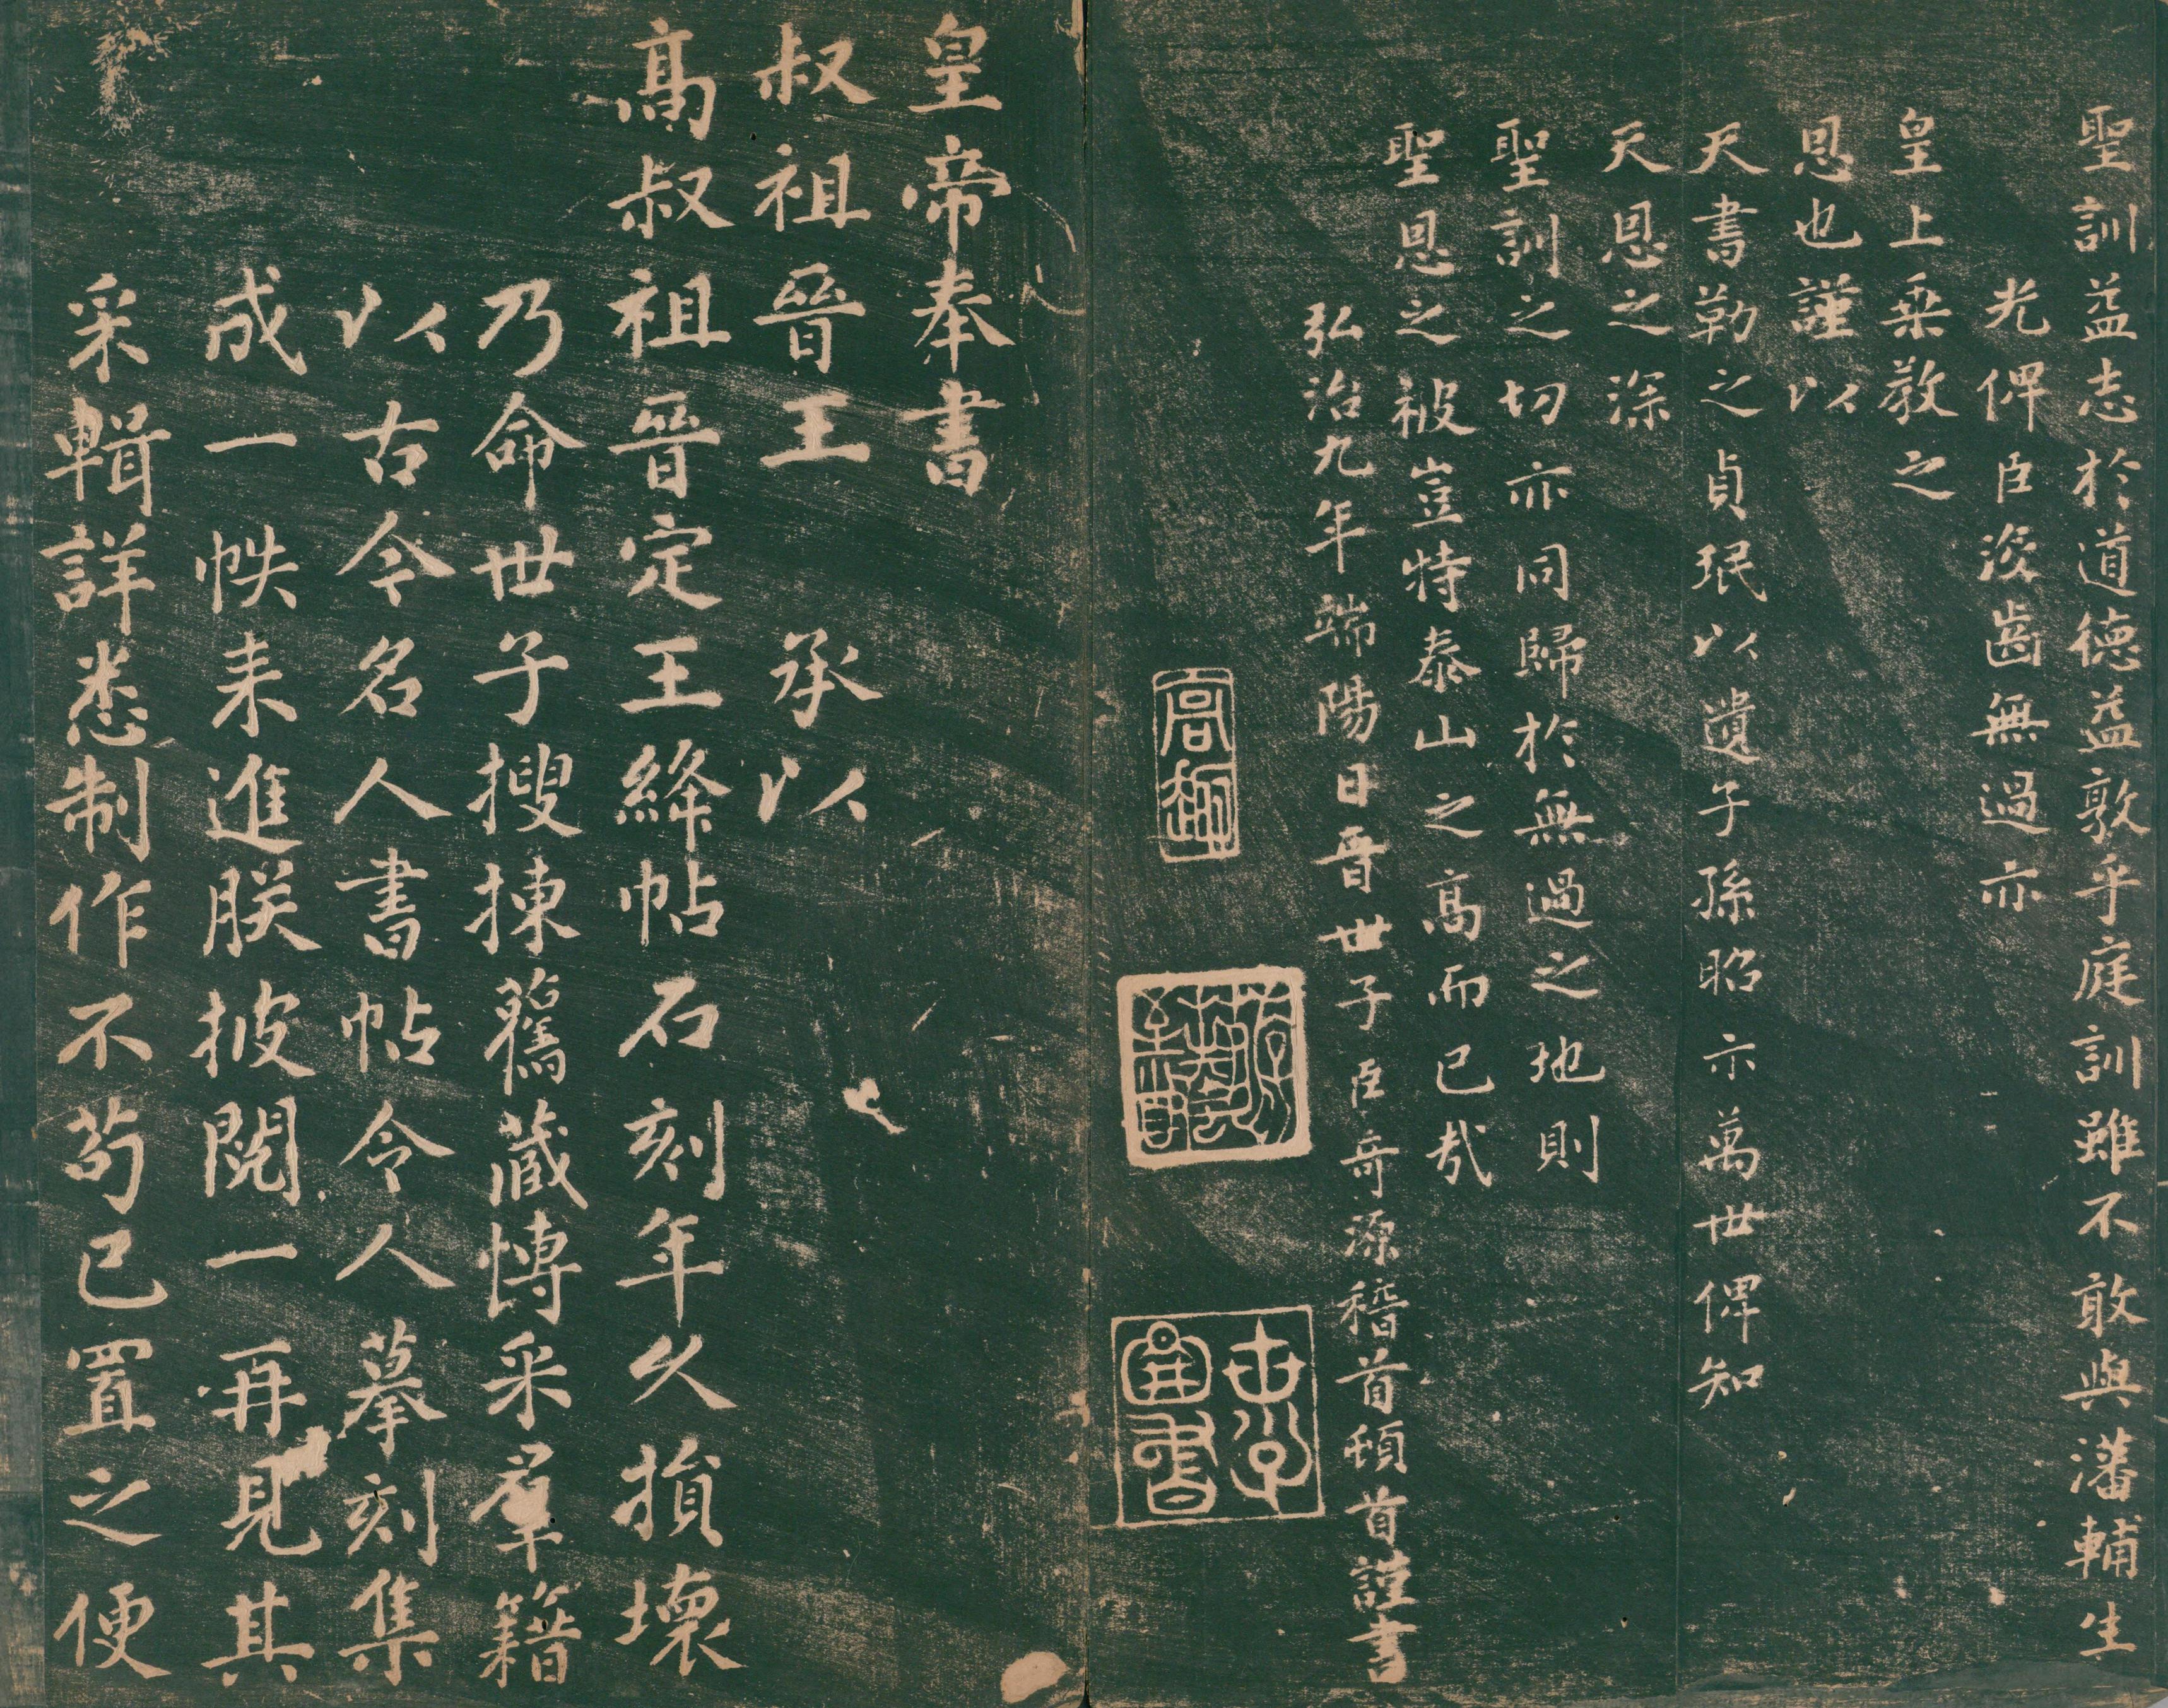 聖訓益志於道德益敦乎庭訓雖不敢與藩輔生
光俾臣没齒無過亦
皇上乗教之
恩也謹以
天書勒之貞珉以遺子孫昭示萬世俾知
天恩之深
聖訓之切亦同歸於無過之地則
聖恩之被豈特泰山之髙而已㢤
弘治九年端陽日晉世子臣奇源稽首頓首謹書
皇帝奉書
叔祖晉王 承以
髙叔祖晉定王絳帖石刻年久損壞
乃命世子搜揀舊藏博采羣籍
以古今名人書帖令人摹刻集
成一帙来進朕披閱一再見其
采輯詳悉制作不苟已置之便